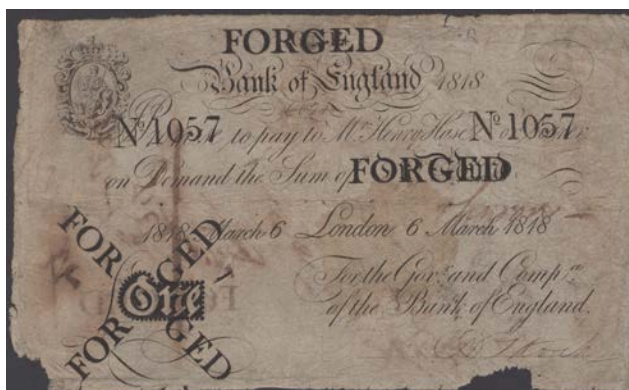 FORGED
Bank of England 1818
Nº 1057 to pay to Mr. Henry Hase Nº 1057
on Demand the Sum of FORGED
1818 March 6 London 6 March 1818
FORGED
FORGED
One
For the Govr. and Compa.
of the Bank of England.